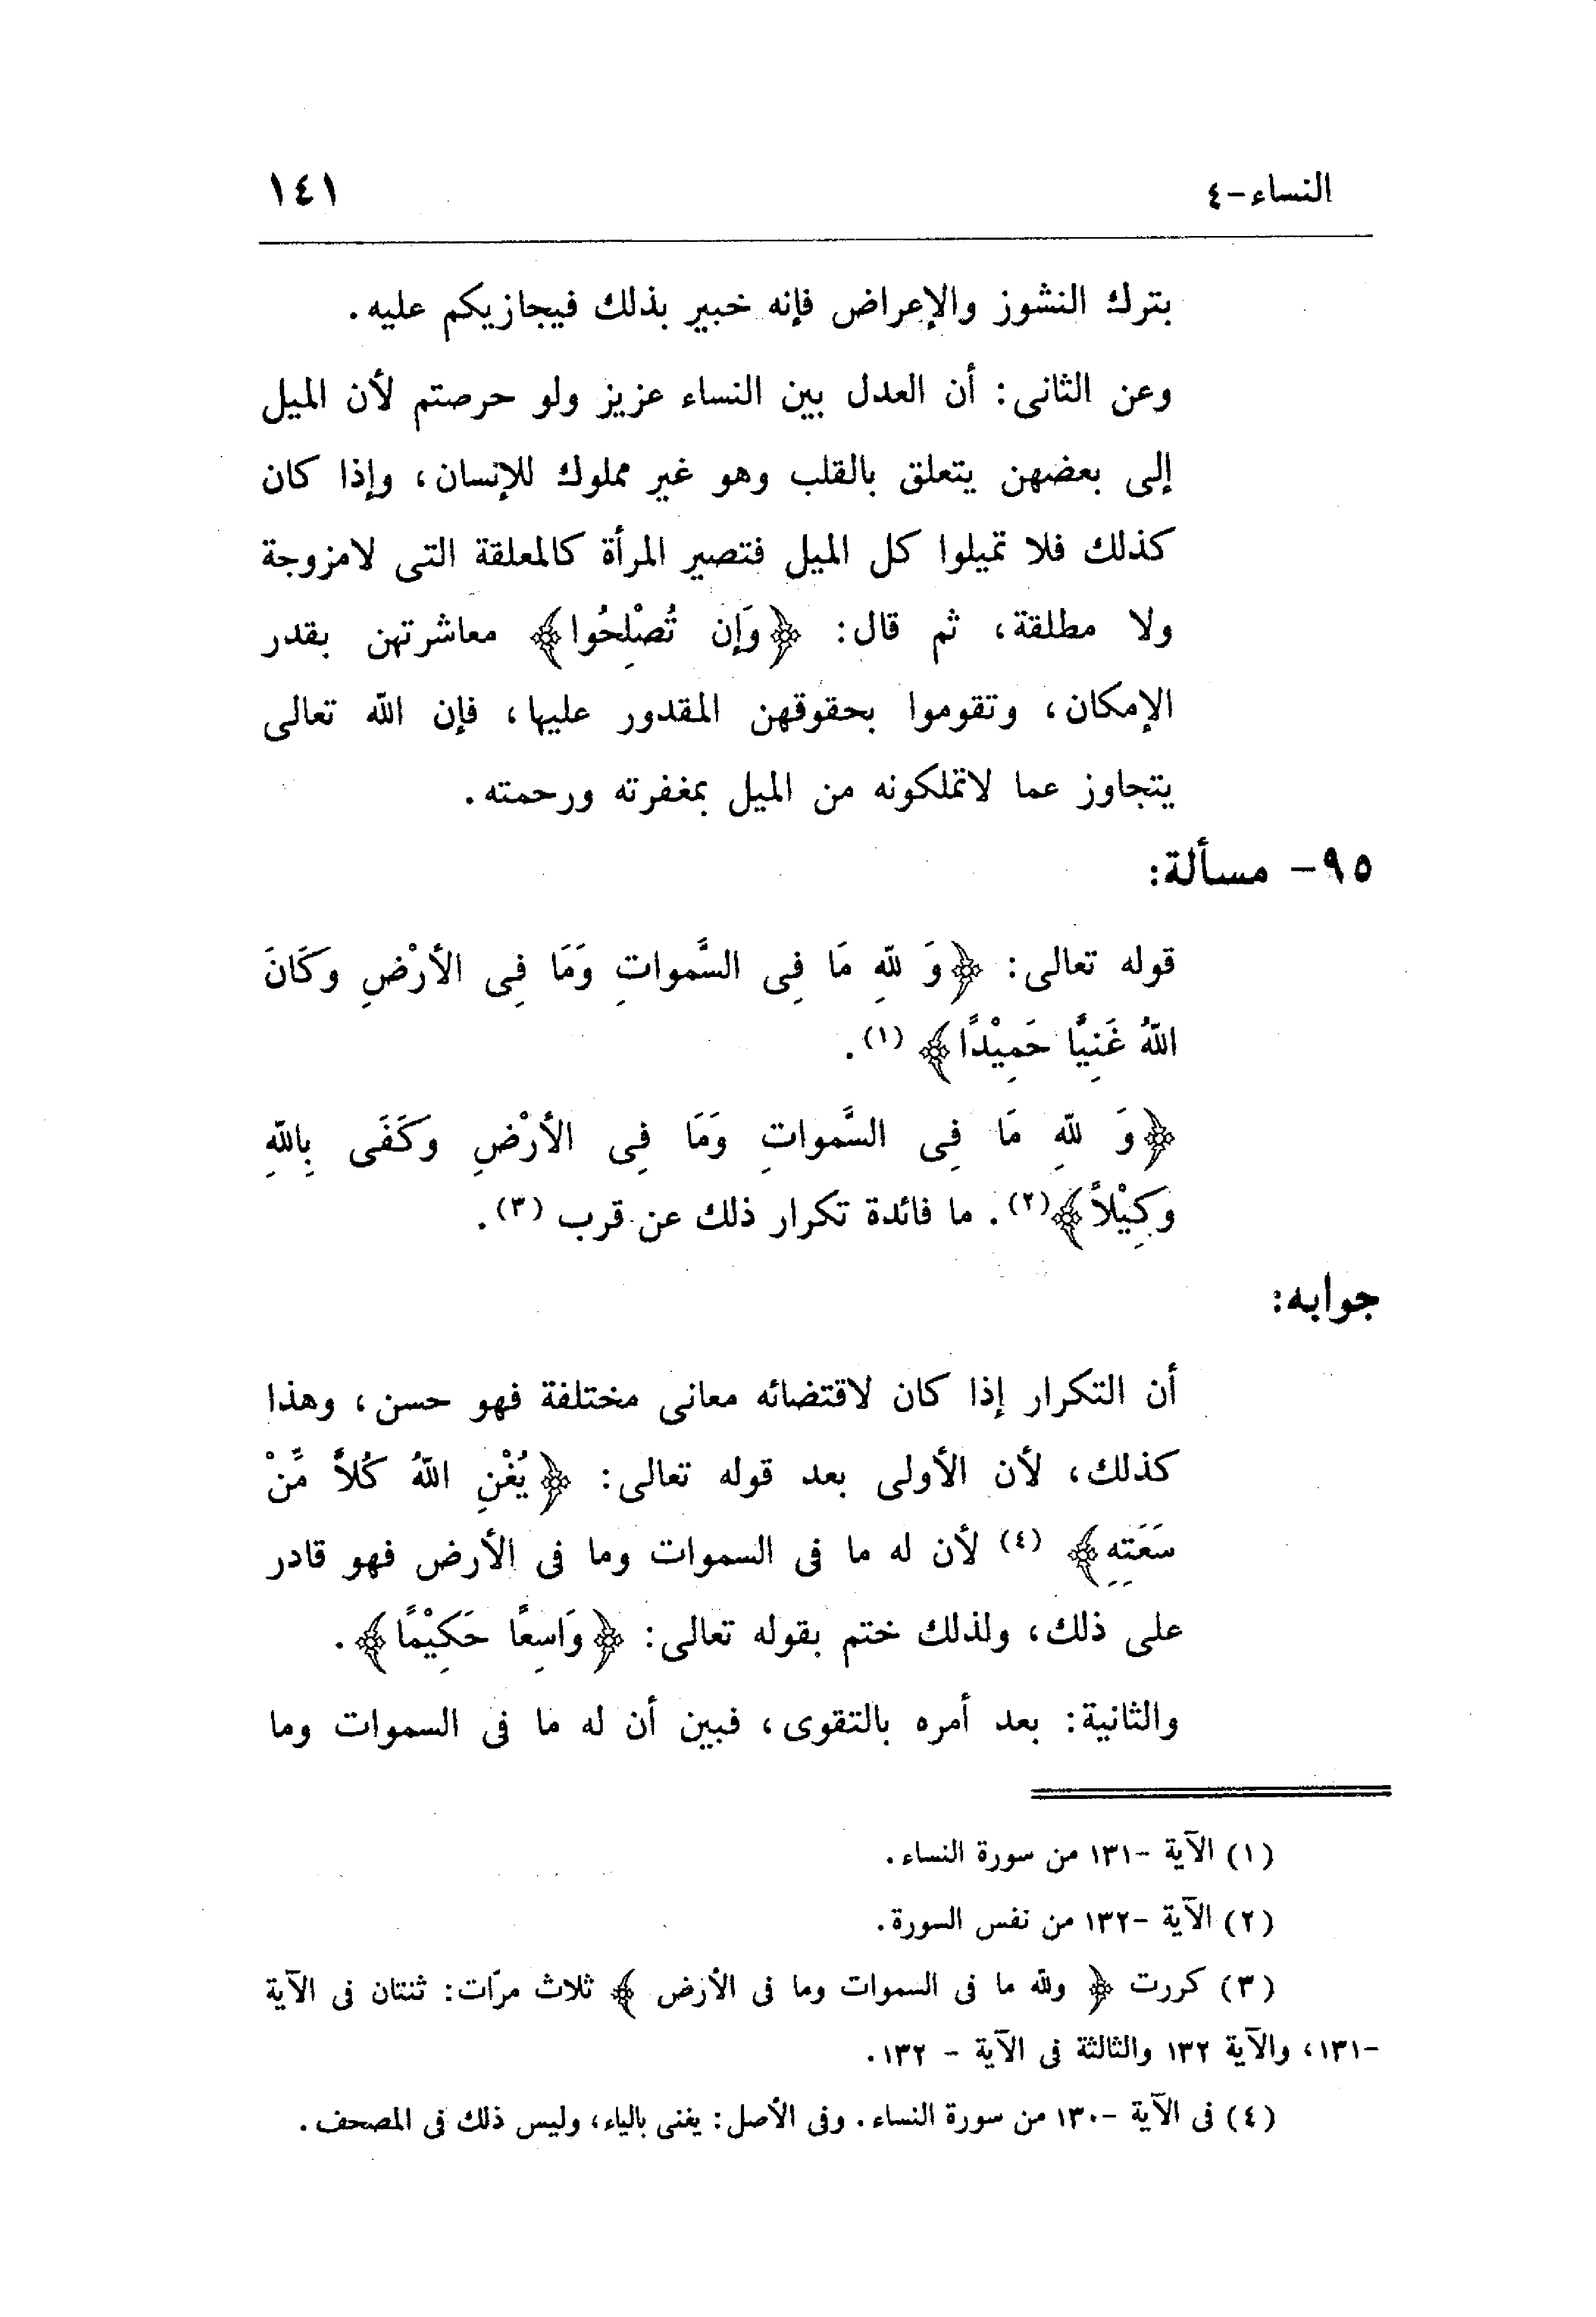 النساء -٤ ١٤١
بترك النشوز والإعراض فإنه خبير بذلك فيجازيكم عليه.
وعن الثانى: أن العدل بين النساء عزيز ولو حرصتم لأن الميل
إلى بعضهن يتعلق بالقلب وهو غير مملوك للإنسان، وإذا كان
كذلك فلا تميلوا كل الميل فتصير المرأة كالمعلقة التى لامزوجة
ولا مطلقة، ثم قال: ﴿وَإن تُصْلِحُوا﴾ معاشرتهن بقدر
الإمكان، وتقوموا بحقوقهن المقدور عليها، فإن الله تعالى
يتجاوز عما لاتملكونه من الميل بمغفرته ورحمته.
٩٥- مسألة:
قوله تعالى: ﴿وَ للهِ مَا فِى السَّمواتِ وَمَا فِى الأرْضِ وكَانَ
اللهُ غَنِيًّا حَمِيْدًا﴾ (١).
﴿وَ للهِ مَا فِى السَّمواتِ وَمَا فِى الأرْضِ وكَفَى بِاللهِ
وكِيْلاً﴾(٢). ما فائدة تكرار ذلك عن قرب (٣).
جوابه:
أن التكرار إذا كان لاقتضائه معانى مختلفة فهو حسن، وهذا
كذلك، لأن الأولى بعد قوله تعالى: ﴿يُغْنِ اللهُ كُلاًّ مِّنْ
سَعَتِهِ﴾ (٤) لأن له ما فى السموات وما فى الأرض فهو قادر
على ذلك، ولذلك ختم بقوله تعالى: ﴿وَاسِعًا حَكِيْمًا﴾.
والثانية: بعد أمره بالتقوى، فبين أن له ما فى السموات وما
(١) الآية -١٣١ من سورة النساء.
(٢) الآية -١٣٢ من نفس السورة.
(٣) كررت ﴿ ولله ما فى السموات وما فى الأرض ﴾ ثلاث مرّات: ثنتان فى الآية
-١٣١، والآية ١٣٢ والثالثة فى الآية - ١٣٢.
(٤) فى الآية -١٣٠ من سورة النساء. وفى الأصل: يغنى بالياء، وليس ذلك فى المصحف.